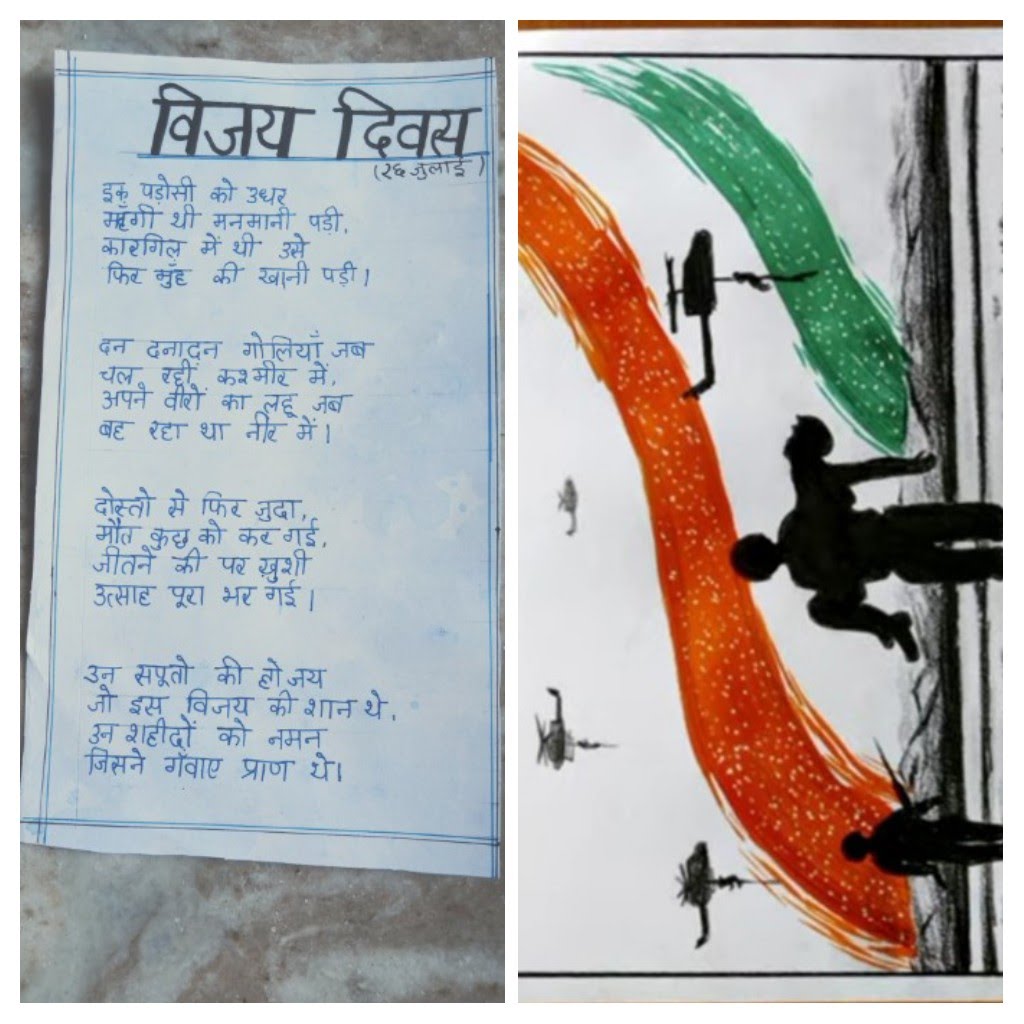 विजय दिवस
(२६ जुलाई)
इक पड़ोसी को उधर
महँगी थी मनमानी पड़ी,
कारगिल में थी उसे
फिर मुँह की खानी पड़ी।
दन दनादन गोलियाँ जब
चल रहीं कश्मीर में,
अपने वीरों का लहू जब
बह रहा था नीर में।
दोस्तो से फिर जुदा,
मौत कुछ को कर गई,
जीतने की पर ख़ुशी
उत्साह पूरा भर गई।
उन सपूतो की हो जय
जो इस विजय की शान थे,
उन शहीदों को नमन
जिसने गँवाए प्राण थे।